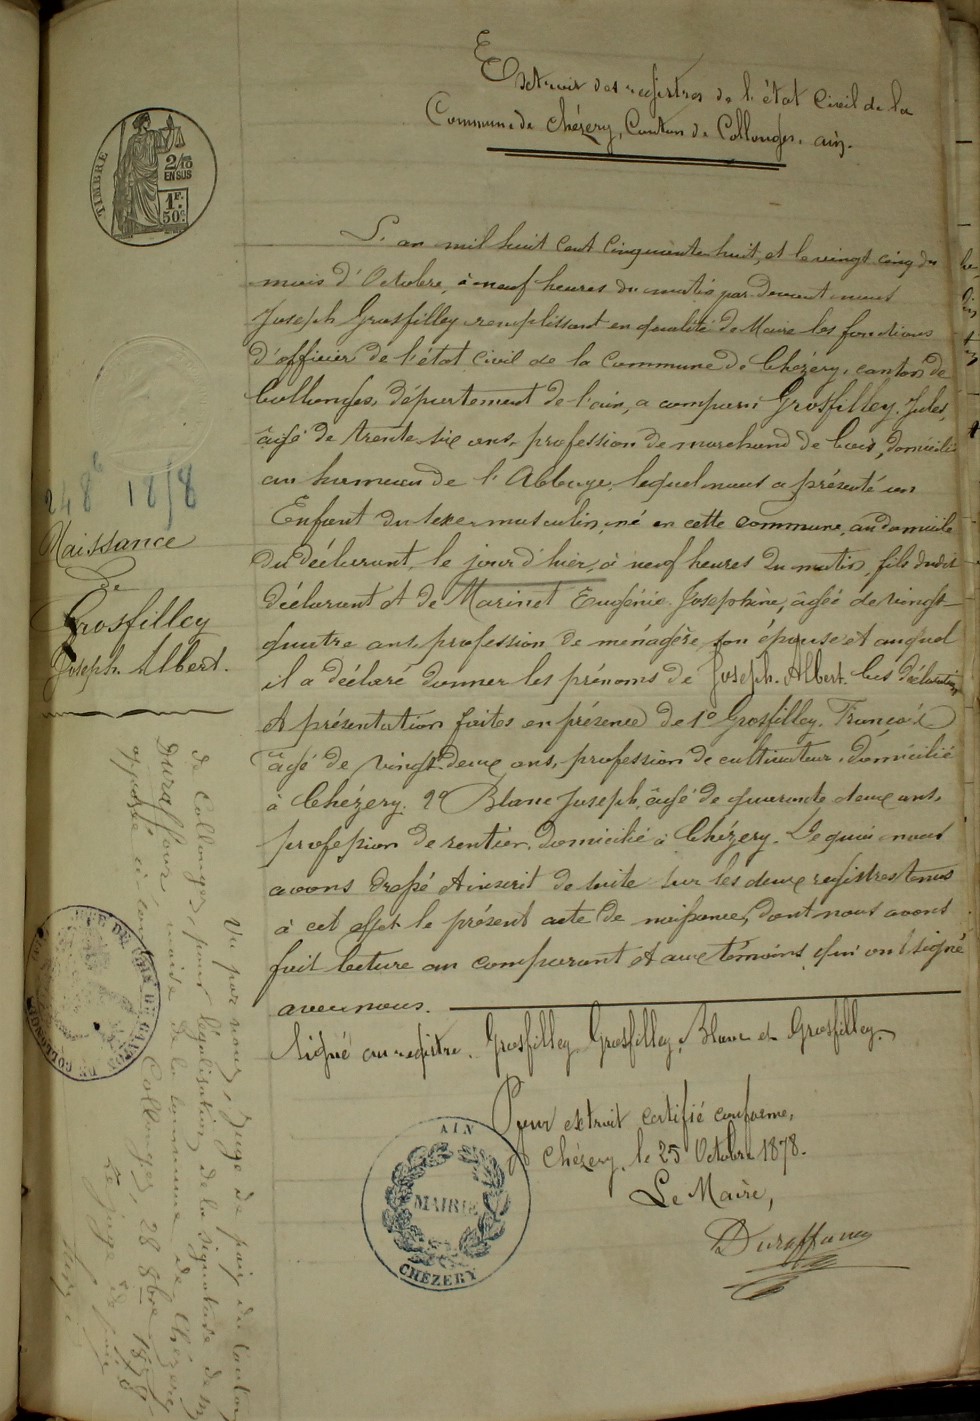 Extrait des registres de l'état Civil de la
Commune de Chézery, Canton de Collonges, ain.
TIMBRE
2/10
EN SUS
1F.
50c.
L'an mil huit cent cinquante huit, et le vingt cinq du
mois d'Octobre, à neuf heures du matin par devant nous
Joseph Grosfilley remplissant en qualité de Maire les fonctions
d'officier de l'état civil de la Commune de Chézery, canton de
Collonges, département de l'ain, a comparu Grosfilley Jules,
âgé de trente six ans, profession de marchand de bois, domicilié
au hameau de l'Abbaye, lequel nous a présenté un
Enfant du sexe masculin, né en cette commune, au domicile
du déclarant, le jour d'hier, à neuf heures du matin, fils dudit
déclarant et de Marinet Eugénie Joséphine, âgée de vingt-
quatre ans, profession de ménagère, son épouse et auquel
il a déclaré donner les prénoms de Joseph-Albert. Ces déclaration
et présentation faites en présence de 1o Grosfilley, François
âgé de vingt deux ans, profession de cultivateur, domicilié
à Chézery. 2o Blanc Joseph, âgé de quarante deux ans,
profession de rentier, domicilié à Chézery. De quoi nous
avons dressé et inscrit de suite sur les deux registres tenus
à cet effet le présent acte de naissance, dont nous avons
fait lecture au comparant et aux témoins qui ont signé
avec nous.
Signé au registre. Grosfilley Grosfilley, Blanc et Grosfilley.
Pour extrait certifié conforme,
Chézery, le 25 Octobre 1878.
Le Maire,
Duraffour
AIN
MAIRIE
CHÉZERY
248 1858
Naissance
De
Grosfilley
Joseph Albert.
Vu par nous, Juge de paix du Canton
de Collonges, pour légalisation de la signature de Mr
Duraffour, maire de la commune de Chézery
apposée ci-contre
Collonges, 28 8bre 1878
Le juge de paix